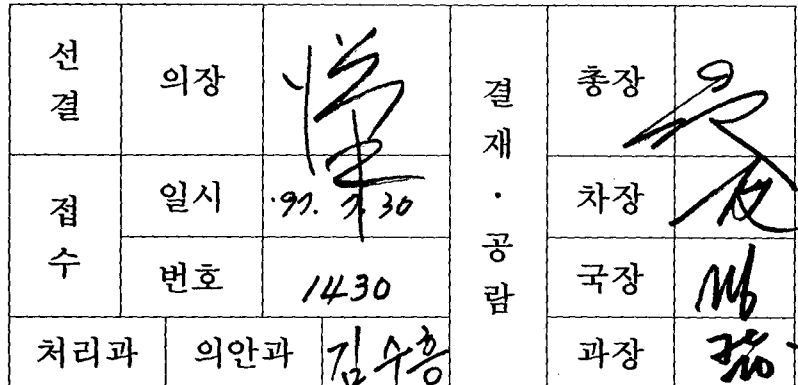 선결 의장 결재·공람 총장
접수 일시 '97. 7. 30 차장
번호 1430 국장
처리과 의안과 김수흥 과장